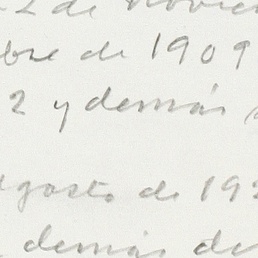 2 de Noviem
bre de 1909
2 y demás
agosto de 192
demás de